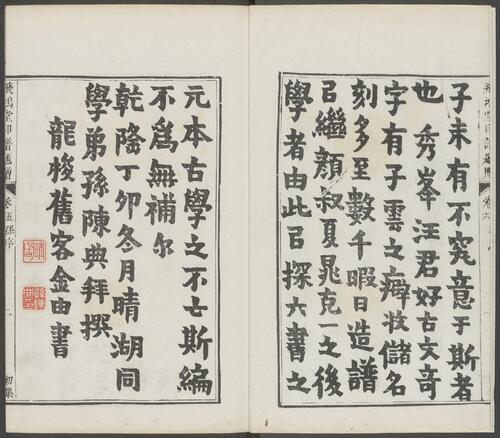 子未有不究意于斯者
也秀峯汪君好古文奇
字有子雲之癖收儲名
刻多至數千暇日造譜
㠯繼顏叔夏晁克一之後
學者由此㠯探六書之
元本古學之不亡斯編
不爲無補尒
乾隆丁卯冬月晴湖同
學弟孫陳典拜撰
龍梭舊客金由書
飛鴻堂印譜
卷五孫序
一
初集